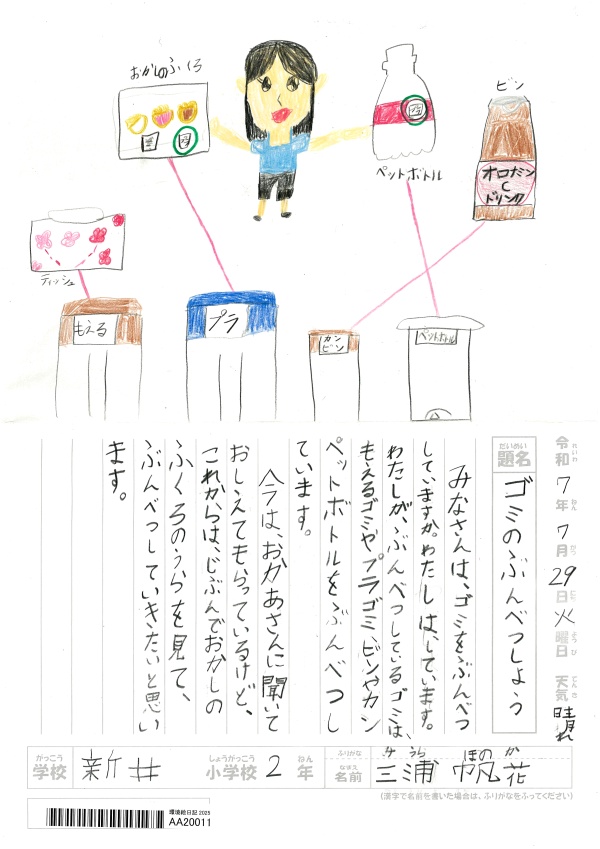 おかしのふくろ
プラ
ビン
オロナミン
C
ドリンク
ペットボトル
ティッシュ
もえる
プラ
カン
ビン
ペットボトル
令和7年7月29日火曜日 天気 晴れ
れいわ ねん がつ にち ようび てんき
だいめい
題名
ゴミのぶんべつしよう
みなさんは、ゴミをぶんべつ
していますか。わたしは、しています。
わたしが、ぶんべつしているゴミは、
もえるゴミや、プラゴミ、ビンやカン
ペットボトルをぶんべつし
ています。
今は、おかあさんに聞いて
おしえてもらっているけど、
これからは、じぶんでおかしの
ふくろのうらを見て、
ぶんべつしていきたいと思い
ます。
がっこう しょうがっこう ねん ふりがな みうら ほのか
学校 新井 小学校 2年 名前 三浦 帆花
なまえ
(漢字で名前を書いた場合は、ふりがなをふってください)
環境絵日記 2025
AA20011